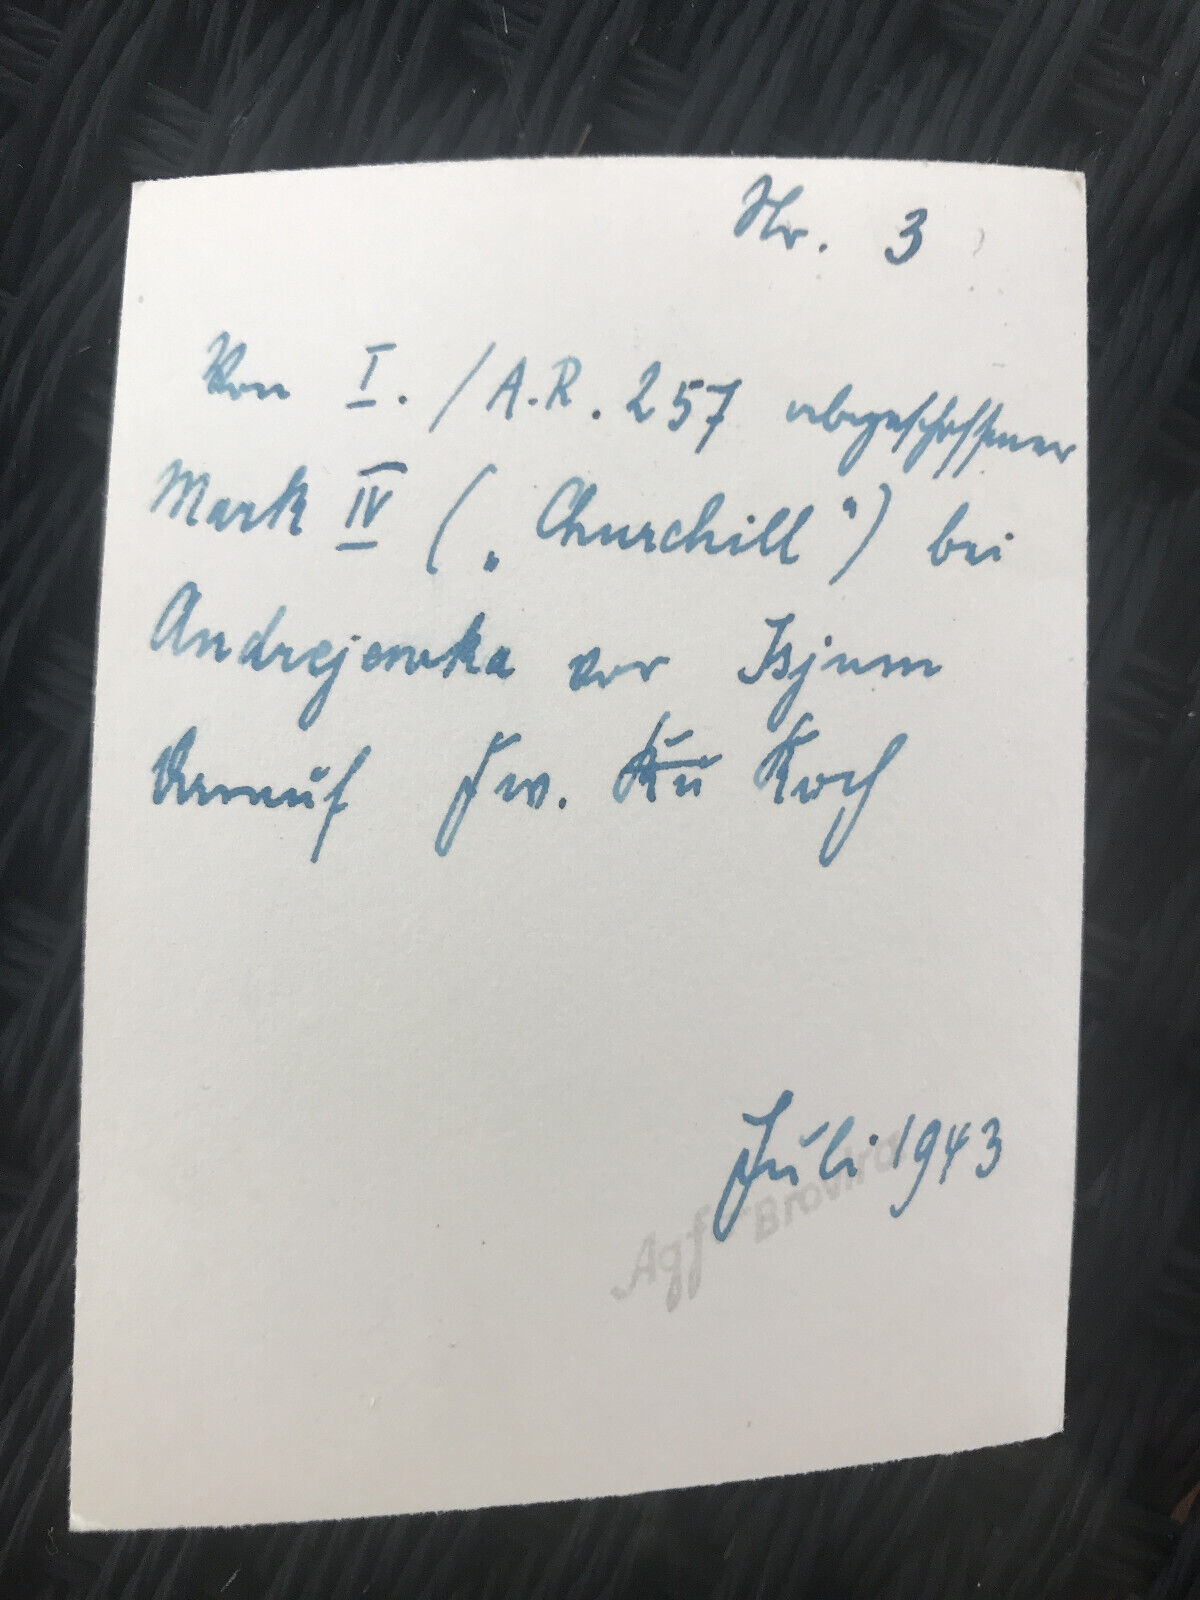 Nr. 3
Von I. / A.R. 257 abgeschossener
Mark IV („Churchill“) bei
Andrejewka vor Isjum
Darauf Fw. Ku Koch
Juli 1943
Agfa Brovira